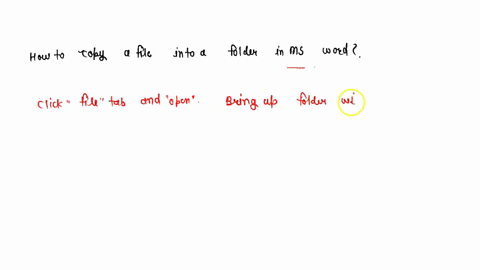 How to copy a file into a folder in MS word?.
click "file" tab and "open". Bring up folder wi